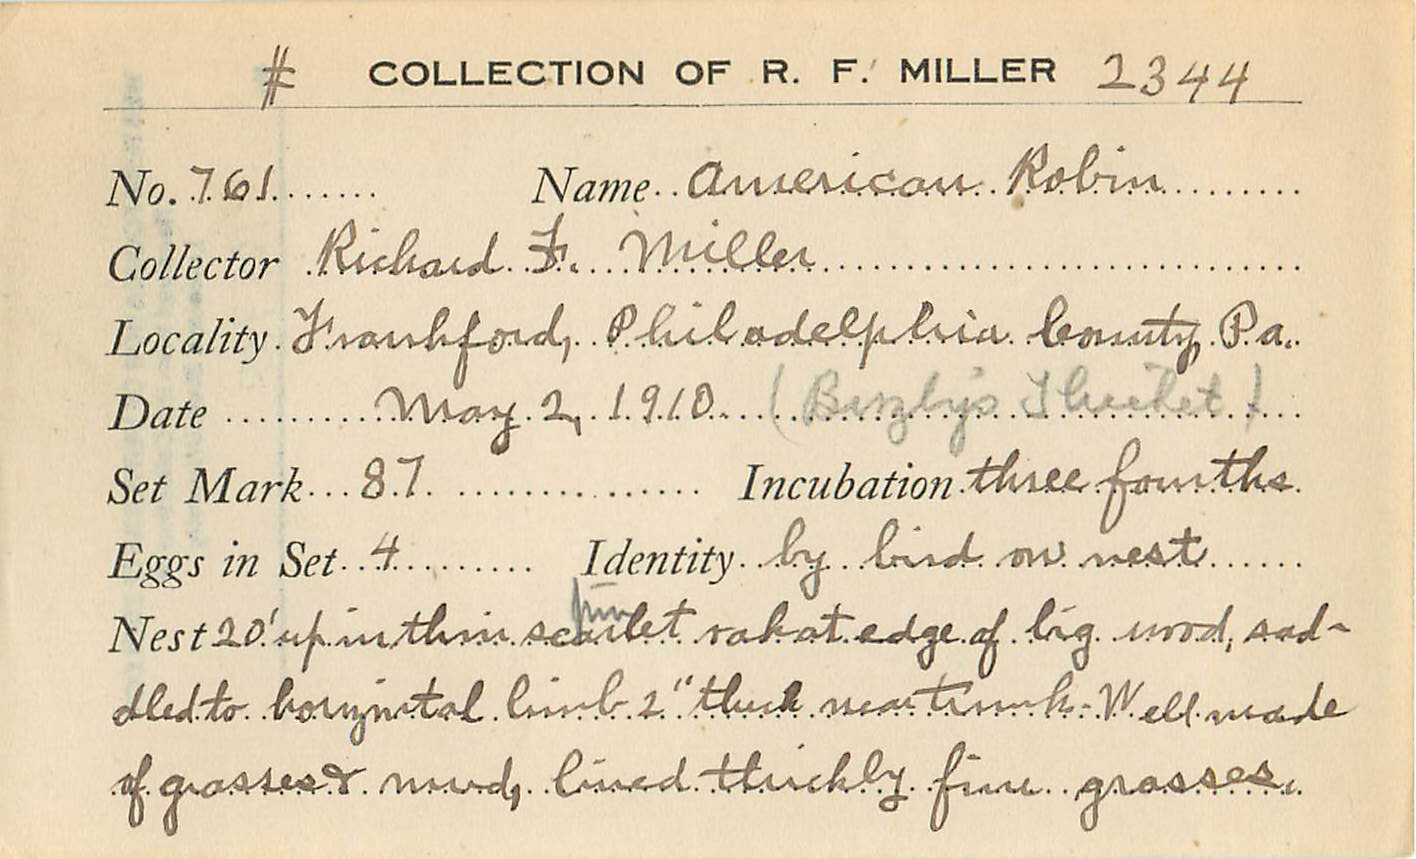 # COLLECTION OF R. F. MILLER 2344
No. 761 Name American Robin
Collector Richard F. Miller
Locality Frankford, Philadelphia County, Pa.
Date May 2, 1910 (Buzby's Thicket)
Set Mark 87 Incubation three fourths
Eggs in Set 4 Identity by bird on nest
pin
Nest 20' up in thin scarlet oak at edge of big wood, sad-
dled to horizontal limb 2" thick near trunk - Well made
of grasses & mud, lined thickly fine grasses.